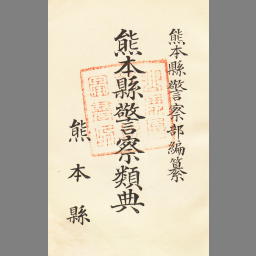 熊本縣警察部編纂
熊本縣警察類典
熊本縣